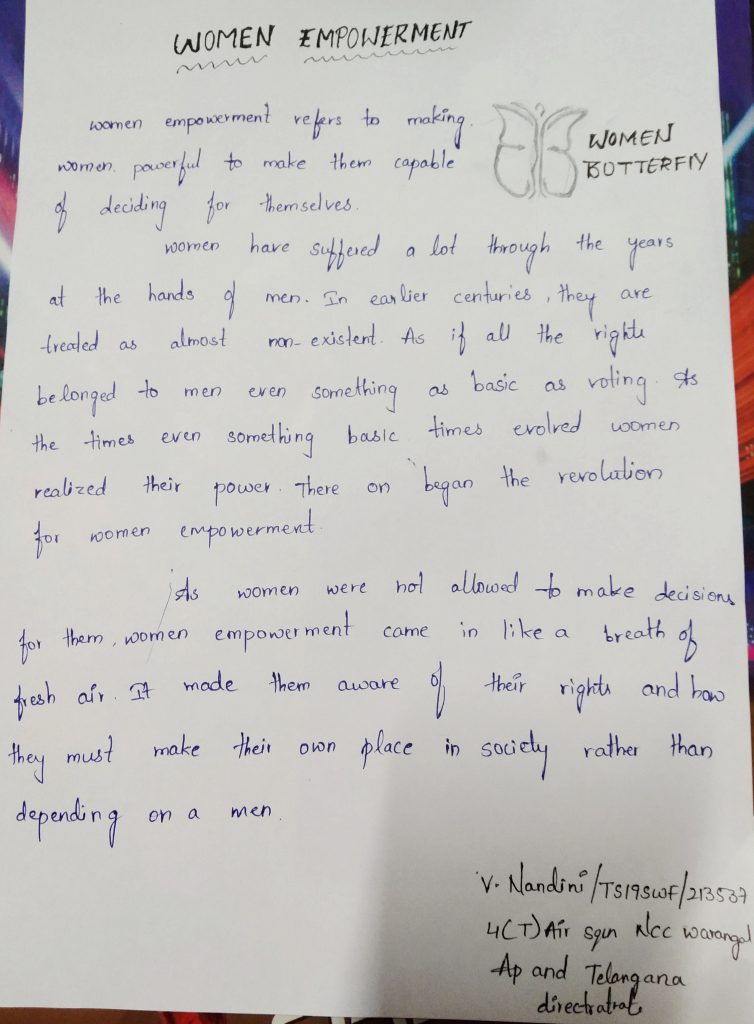 WOMEN EMPOWERMENT
women empowerment refers to making
women powerful to make them capable
of deciding for themselves.
WOMEN
BUTTERFLY
women have suffered a lot through the years
at the hands of men. In earlier centuries, they are
treated as almost non-existent. As if all the rights
belonged to men even something as basic as voting. As
the times even something basic times evolved women
realized their power. There on began the revolution
for women empowerment.
As women were not allowed to make decisions
for them, women empowerment came in like a breath of
fresh air. It made them aware of their rights and how
they must make their own place in society rather than
depending on a men.
V. Nandini/TS19SWF/213537
4(T) Air sqn Ncc warangal
Ap and Telangana